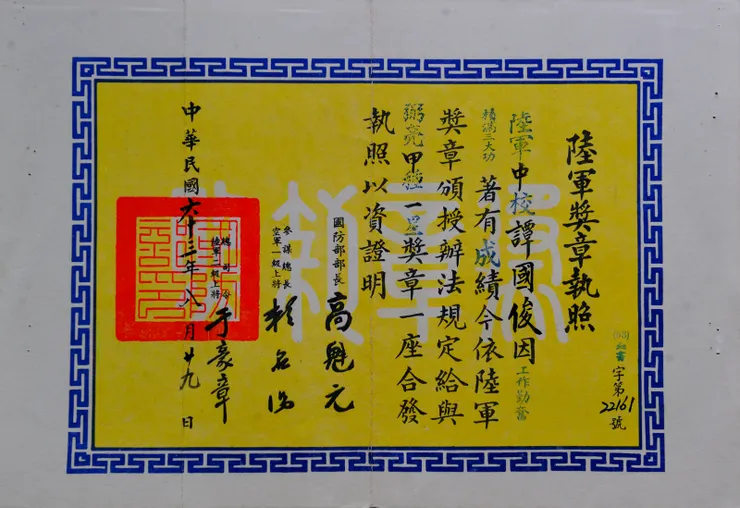 陸軍獎章執照
字第22161號
陸軍中校譚國俊因工作勤奮
積滿三大功著有成績今依陸軍
獎章頒授辦法規定給與
弼亮甲種一星獎章一座合發
執照以資證明
國防部部長高魁元
參謀總長
空軍一級上將賴名湯
總司令
陸軍二級上將于豪章
中華民國六十三年八月廿九日